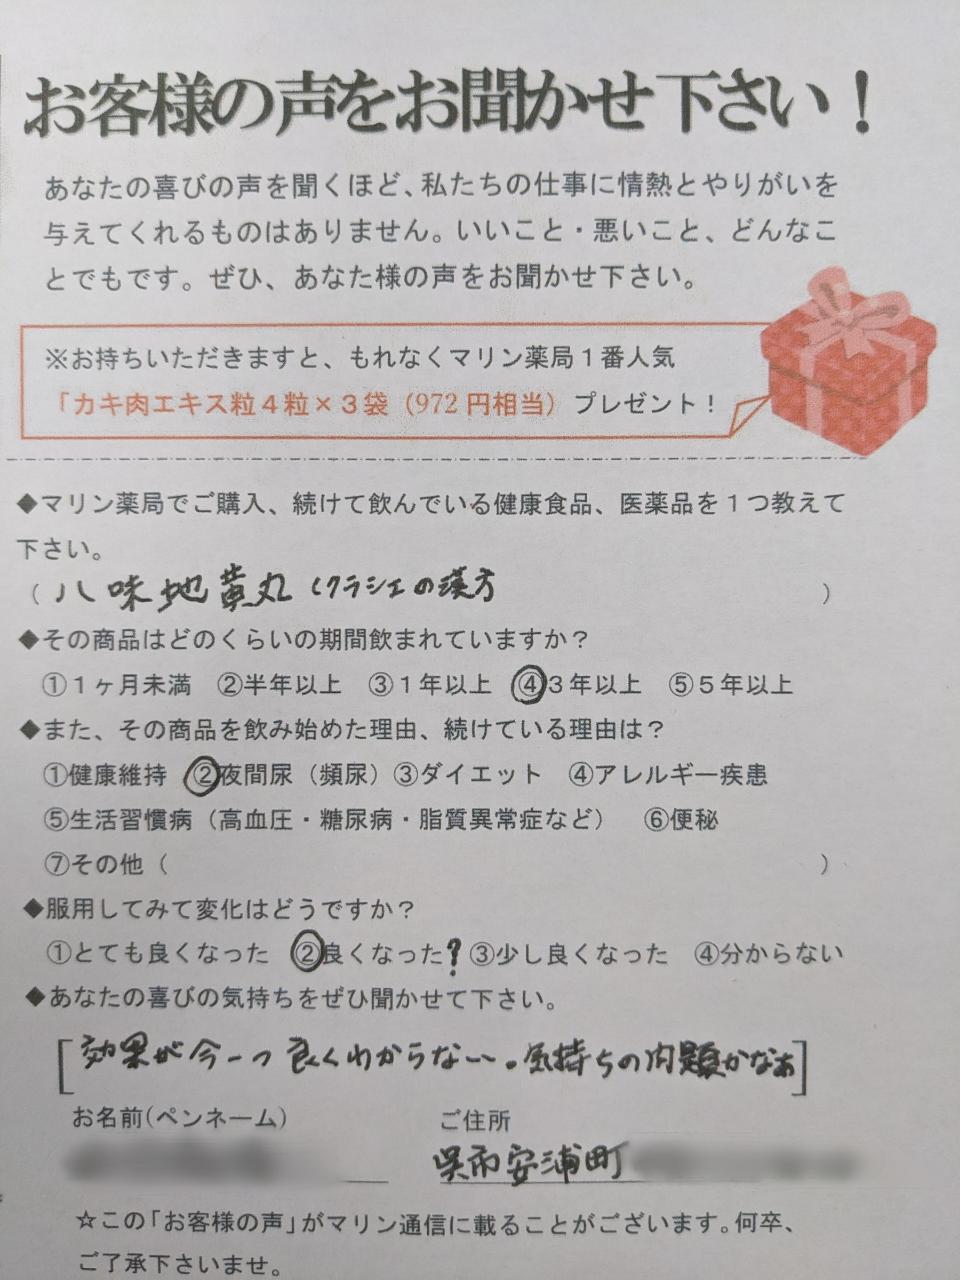 お客様の声をお聞かせ下さい！
あなたの喜びの声を聞くほど、私たちの仕事に情熱とやりがいを
与えてくれるものはありません。いいこと・悪いこと、どんなこ
とでもです。ぜひ、あなた様の声をお聞かせ下さい。
※お持ちいただきますと、もれなくマリン薬局１番人気
「カキ肉エキス粒４粒×３袋（972円相当）プレゼント！
◆マリン薬局でご購入、続けて飲んでいる健康食品、医薬品を１つ教えて
下さい。
（八味地黄丸（クラシエの漢方　）
◆その商品はどのくらいの期間飲まれていますか？
①１ヶ月未満　②半年以上　③１年以上　④３年以上　⑤５年以上
◆また、その商品を飲み始めた理由、続けている理由は？
①健康維持　②夜間尿（頻尿）③ダイエット　④アレルギー疾患
⑤生活習慣病（高血圧・糖尿病・脂質異常症など）　⑥便秘
⑦その他（　）
◆服用してみて変化はどうですか？
①とても良くなった　②良くなった？③少し良くなった　④分からない
◆あなたの喜びの気持ちをぜひ聞かせて下さい。
[効果が今一つ良くわからない。気持ちの問題かなぁ]
お名前(ペンネーム)　ご住所
呉市安浦町
☆この「お客様の声」がマリン通信に載ることがございます。何卒、
ご了承下さいませ。